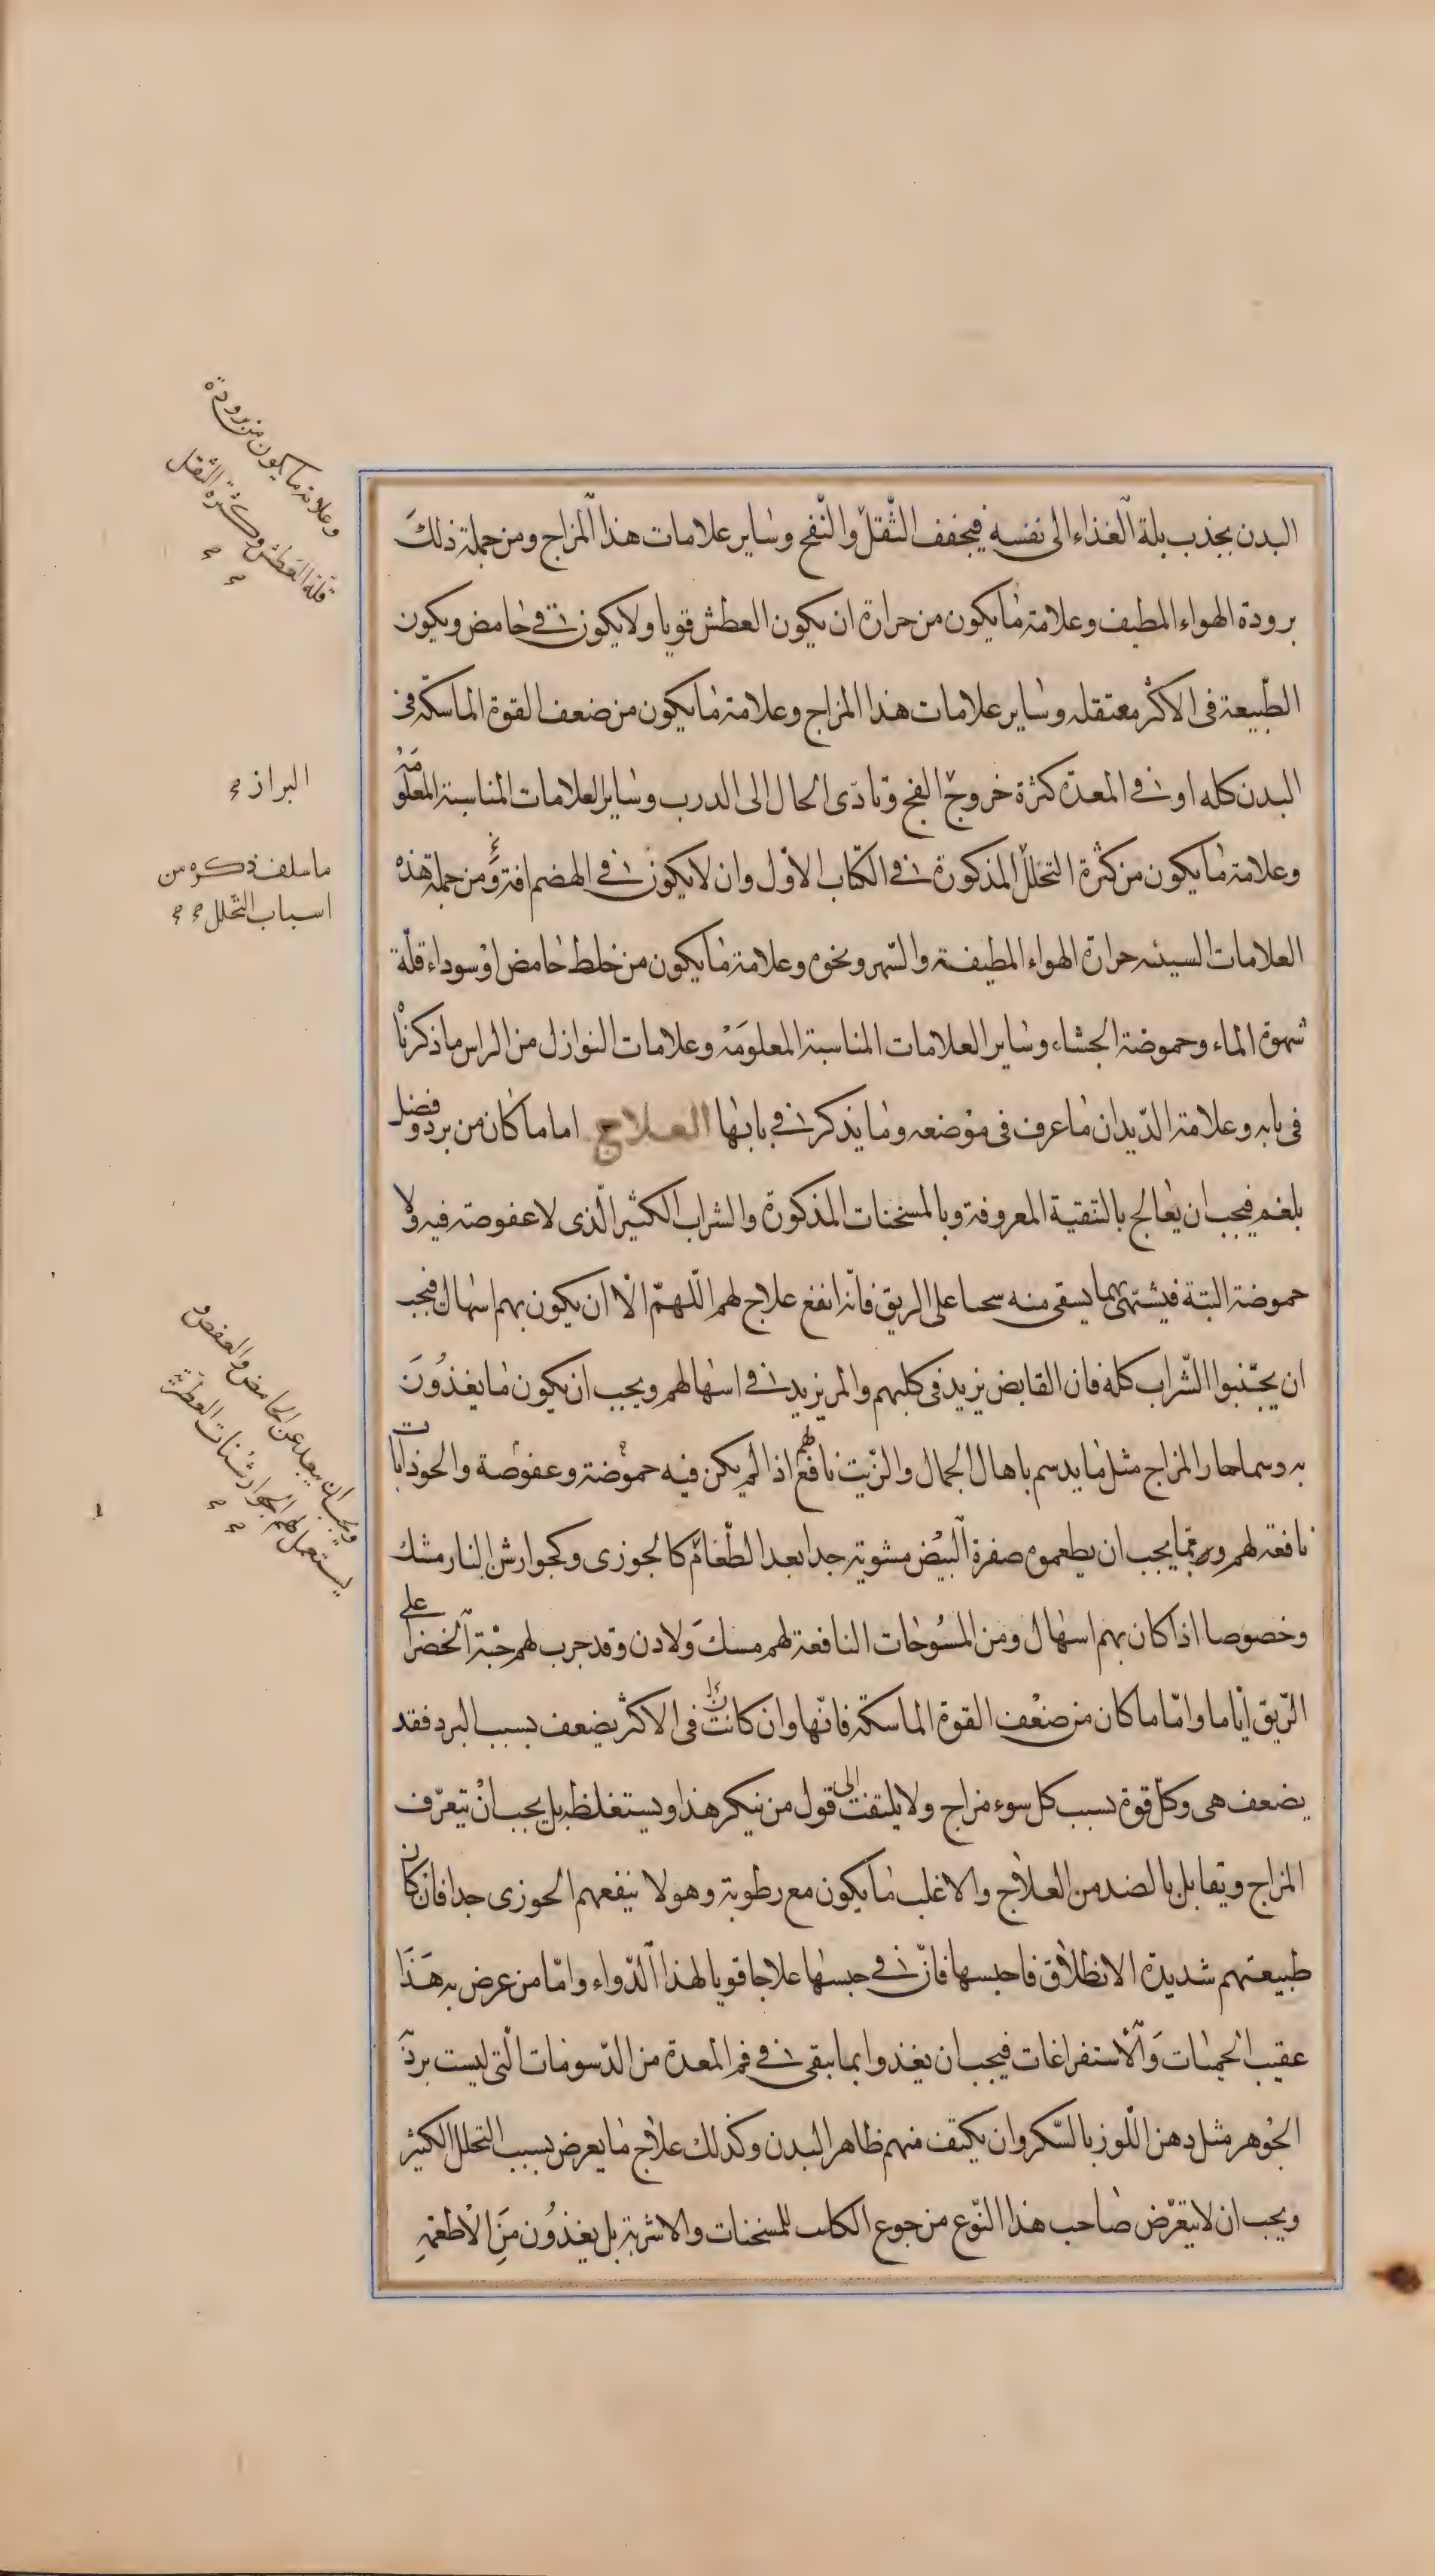 البدن يجذب بلة الغذاء الى نفسه فيجفف الثقل والنفح وساير علامات هذا المزاج ومن جملة ذلك
برودة الهواء المطيف وعلامة ما يكون من حرارة ان يكون العطش قويا ولا يكون قى حامض ويكون
الطبيعة فى الاكثر معتقله وساير علامات هذا المزاج وعلامة ما يكون من ضعف القوة الماسكة فى
البدن كله او فى المعدة كثرة خروج الفج وتادى الحال الى الدرب وساير العلامات المناسبة المعلومة
وعلامة ما يكون من كثرة التحلل المذكورة فى الكتاب الاول وان لا يكون فى الهضم افة ومن جملة هذه
العلامات السيئه حرارة الهواء المطيفة والسهر ونحوه وعلامة ما يكون من خلط حامض او سوداء قلة
شهوة الماء وحموضة الجشاء وساير العلامات المناسبة المعلومة وعلامات النوازل من الراس ما ذكرنا
فى بابه وعلامة الديدان ما عرف فى موضعه وما يذكر فى بابها العلاج اما ما كان من برد وفضل
بلغم فيجب ان يعالج بالتنقية المعروفة وبالمسخنات المذكورة والشراب الكثير الذى لا عفوصة فيه ولا
حموضة البتة فيشتهى بما يسقى منه سخنا على الريق فانه انفع علاج لهم اللهم الا ان يكون بهم اسهال فيجب
ان يجتنبوا الشراب كله فان القابض يزيد فى كلبهم والمر يزيد فى اسهالهم ويجب ان يكون ما يغذون
به دسما حار المزاج مثل ما يدسم باهال الجمال والزيت نافع لهم اذا لم يكن فيه حموضة وعفوصة والجوذابات
نافعة لهم وربما يجب ان يطعموه صفرة البيض مشوية جدا بعد الطعام كالجوزى وكجوارش النارمشك
وخصوصا اذا كان بهم اسهال ومن المسوحات النافعة لهم مسك ولادن وقد جرب لهم حبة الخضرا على
الريق اياما واما ما كان من ضعف القوة الماسكة فانها وان كانت فى الاكثر يضعف بسبب البرد فقد
يضعف هى وكل قوة بسبب كل سوء مزاج ولا يلتفت الى قول من ينكر هذا ويستغلظ بل يجب ان يتعرف
المزاج ويقابل بالضد من العلاج والاغلب ما يكون مع رطوبة وهولا ينفعهم الجوزى جدا فان كان
طبيعتهم شديدة الانطلاق فاحبسها فان فى حبسها علاجا قويا لهذا الدواء واما من عرض به هذا
عقيب الحميات والاستفراغات فيجب ان يغذوا بما يبقى فى فم المعدة من الدسومات التى ليست بردية
الجوهر مثل دهن اللوز بالسكر وان يكثف منهم ظاهر البدن وكذلك علاج ما يعرض بسبب التحلل الكثير
ويجب ان لا يتعرض صاحب هذا النوع من جوع الكلب للمسخنات والاشربة بل يغذون من الاطعمه
وعلامة ما يكون من برودة
قلة العطش وكثرة الثقل
البراز
ما سلف ذكره من
اسباب التحلل
ويجب ان يبعد عن الحامض والعفص و
يستعمل لهم الجوارشنات العطرة